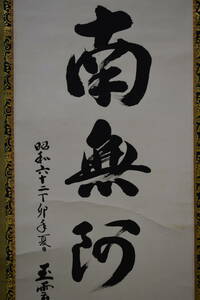 南無阿
昭和六十二丁卯年夏日
玉雲